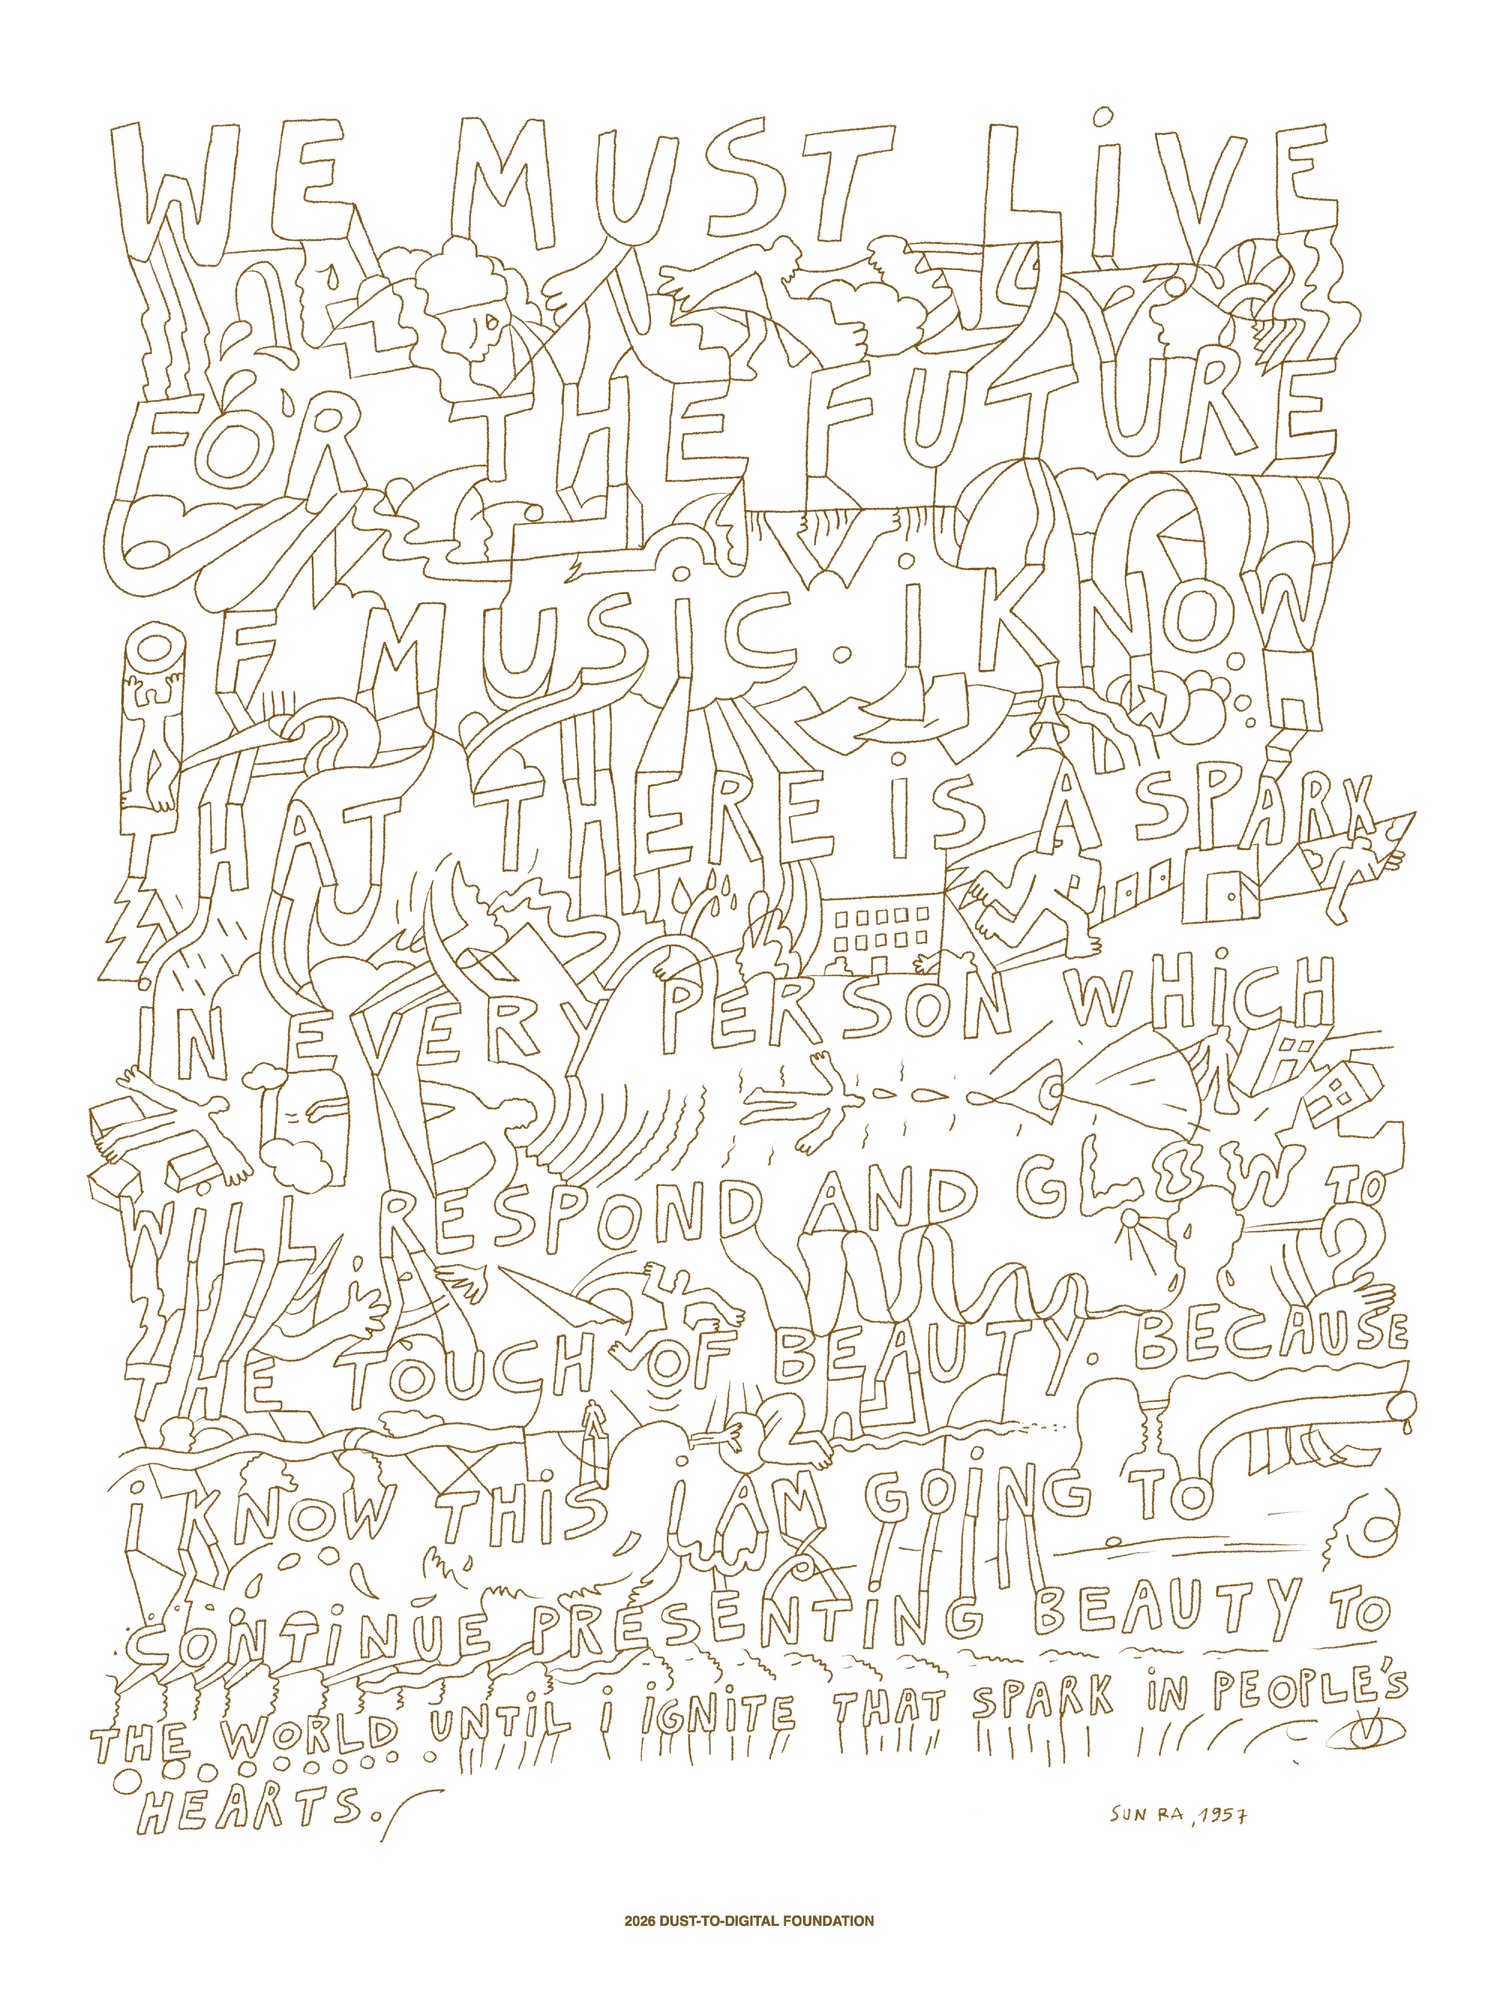 WE MUST LiVE
FOR THE FUTURE
OF MUSiC. i KNOW
THAT THERE iS A SPARK
IN EVERY PERSON WHiCH
WILL RESPOND AND GLOW TO
THE TOUCH OF BEAUTY. BECAUSE
i KNOW THiS, i AM GOiNG TO
CONTiNUE PRESENTING BEAUTY TO
THE WORLD UNTiL i iGNiTE THAT SPARK iN PEOPLE'S
HEARTS.
SUN RA, 1957
2026 DUST-TO-DIGITAL FOUNDATION